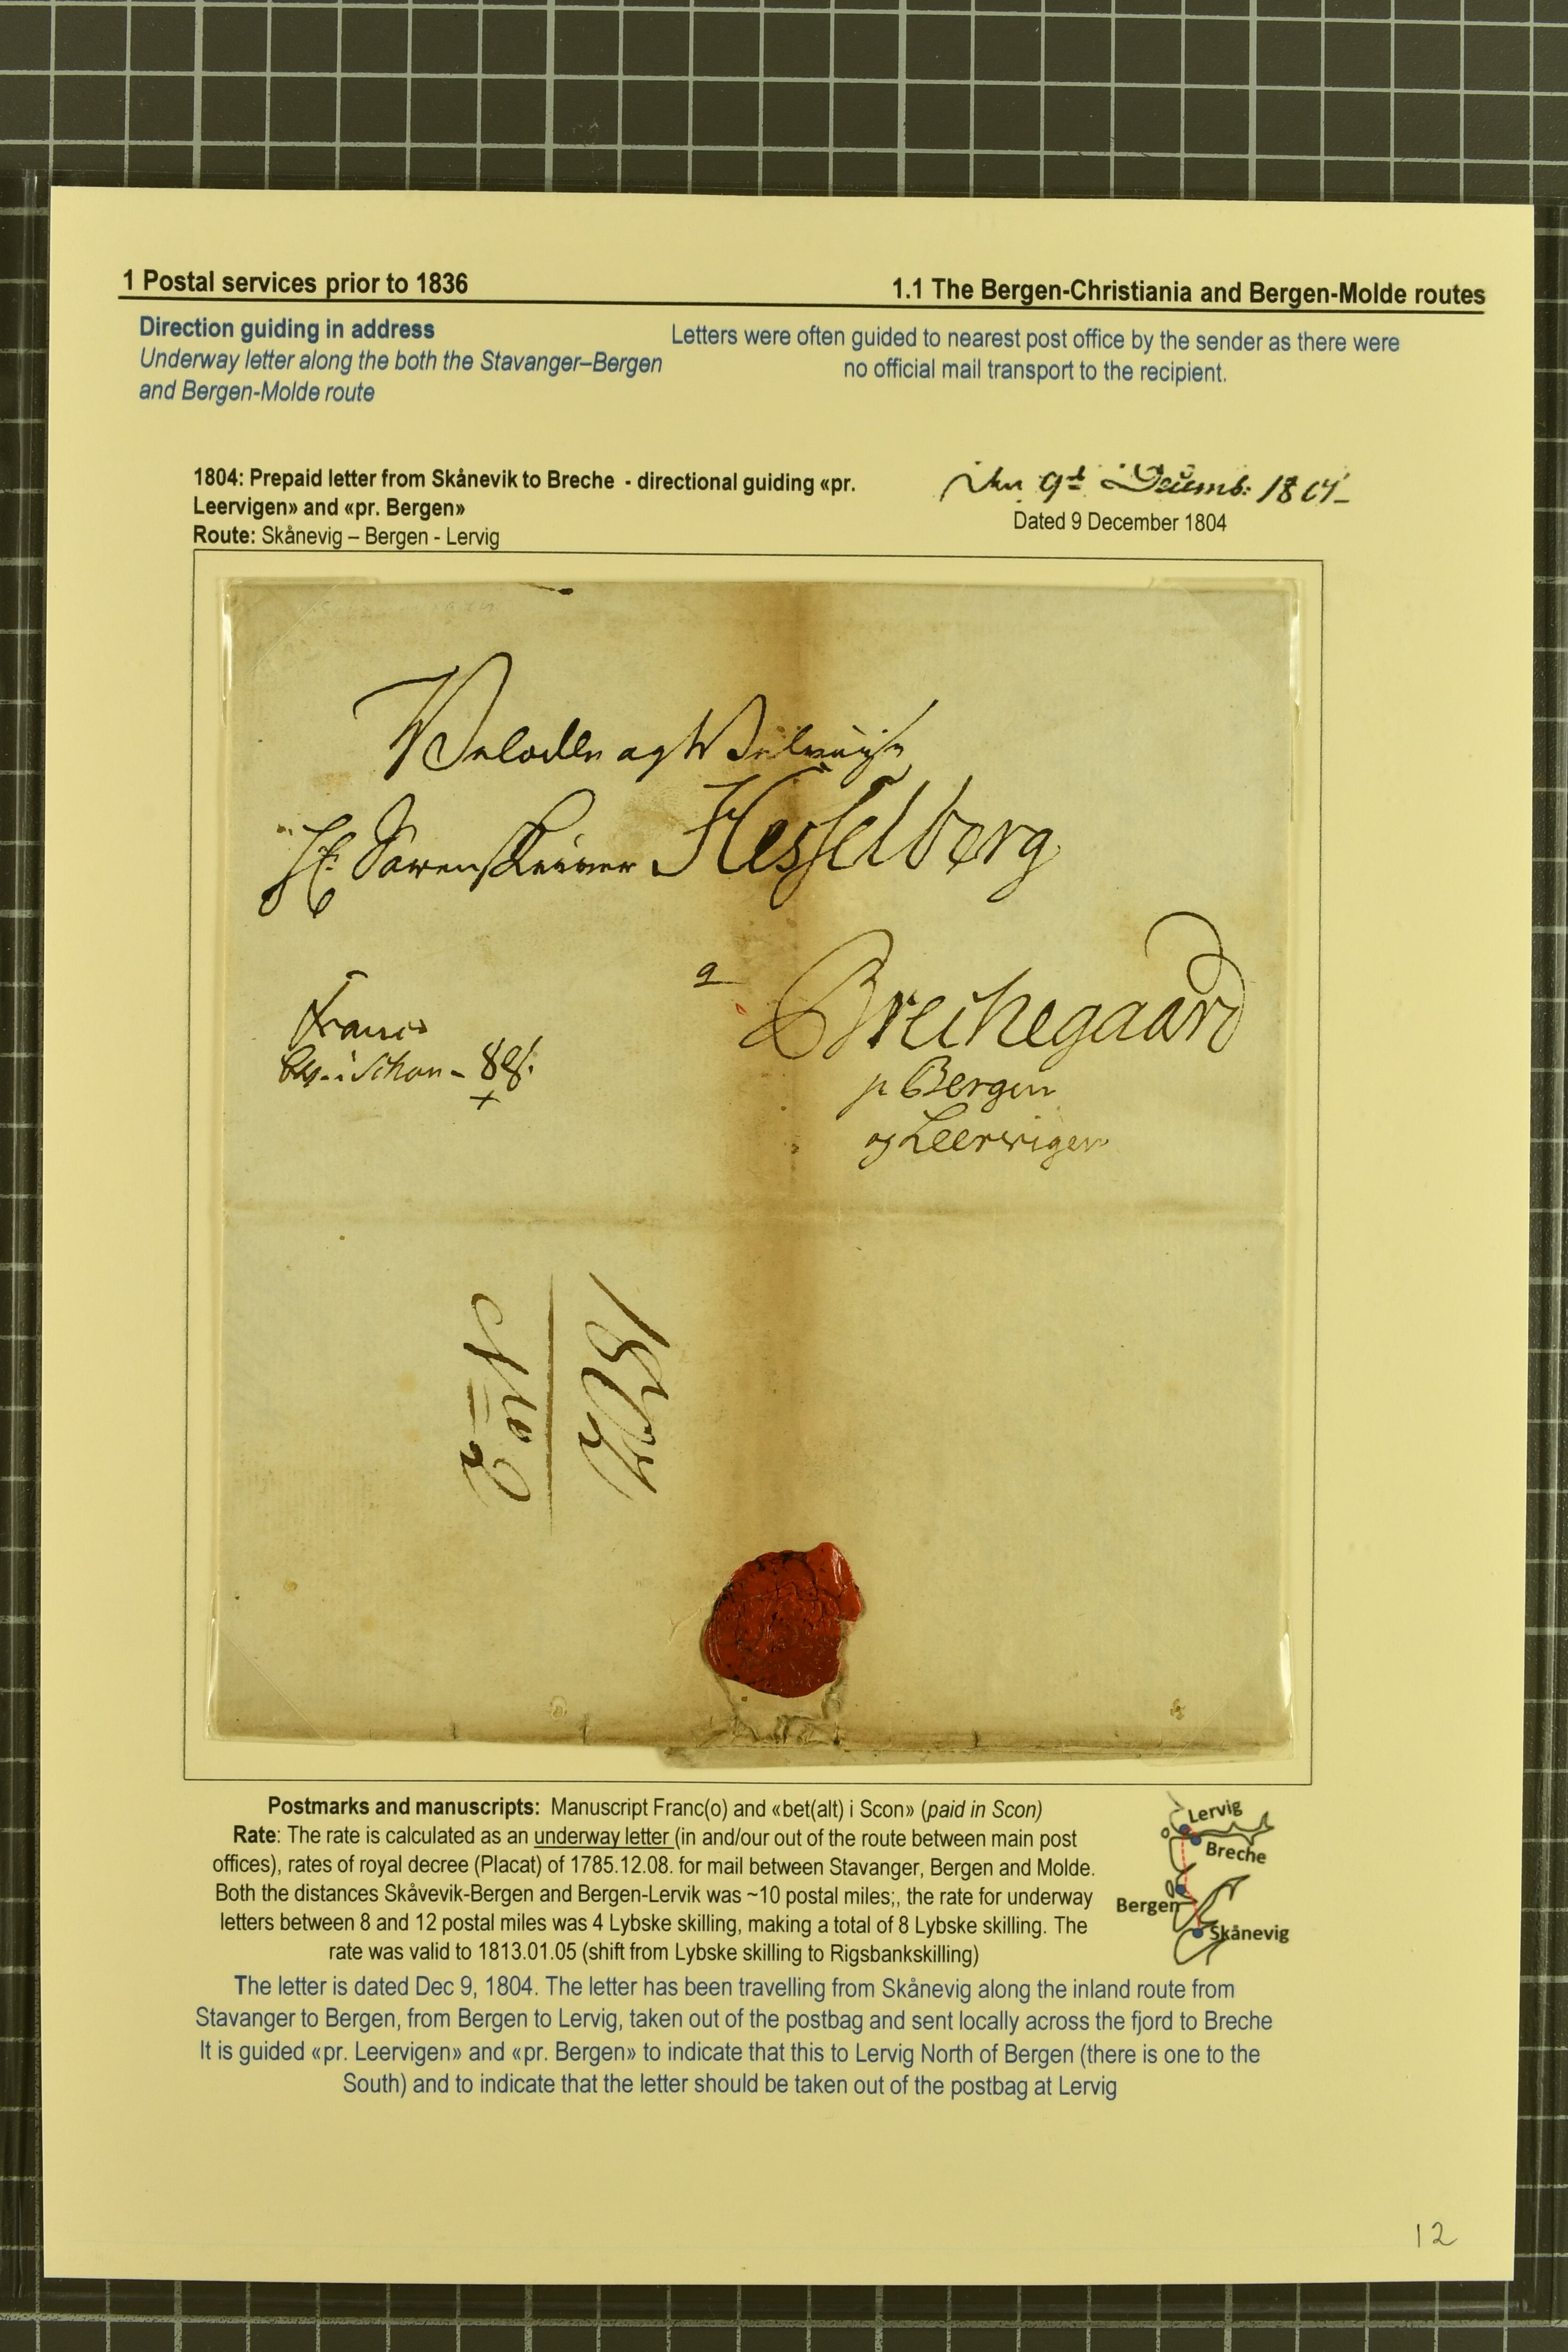 1 Postal services prior to 1836
1.1 The Bergen-Christiania and Bergen-Molde routes
Direction guiding in address
Underway letter along the both the Stavanger–Bergen
and Bergen-Molde route
Letters were often guided to nearest post office by the sender as there were
no official mail transport to the recipient.
1804: Prepaid letter from Skånevik to Breche - directional guiding «pr.
Leervigen» and «pr. Bergen»
Route: Skånevig – Bergen - Lervig
9d Decemb: 1804
Dated 9 December 1804
Velædle og Velviise
Hr. Sorenskriver Hesselberg
a Brechegaard
p Bergen
og Leervigen
Franco
i Schon - 8
1804
No 2
Postmarks and manuscripts: Manuscript Franc(o) and «bet(alt) i Scon» (paid in Scon)
Rate: The rate is calculated as an underway letter (in and/our out of the route between main post
offices), rates of royal decree (Placat) of 1785.12.08. for mail between Stavanger, Bergen and Molde.
Both the distances Skåvevik-Bergen and Bergen-Lervik was ~10 postal miles;, the rate for underway
letters between 8 and 12 postal miles was 4 Lybske skilling, making a total of 8 Lybske skilling. The
rate was valid to 1813.01.05 (shift from Lybske skilling to Rigsbankskilling)
Lervig
Breche
Bergen
Skånevig
The letter is dated Dec 9, 1804. The letter has been travelling from Skånevig along the inland route from
Stavanger to Bergen, from Bergen to Lervig, taken out of the postbag and sent locally across the fjord to Breche
It is guided «pr. Leervigen» and «pr. Bergen» to indicate that this to Lervig North of Bergen (there is one to the
South) and to indicate that the letter should be taken out of the postbag at Lervig
12